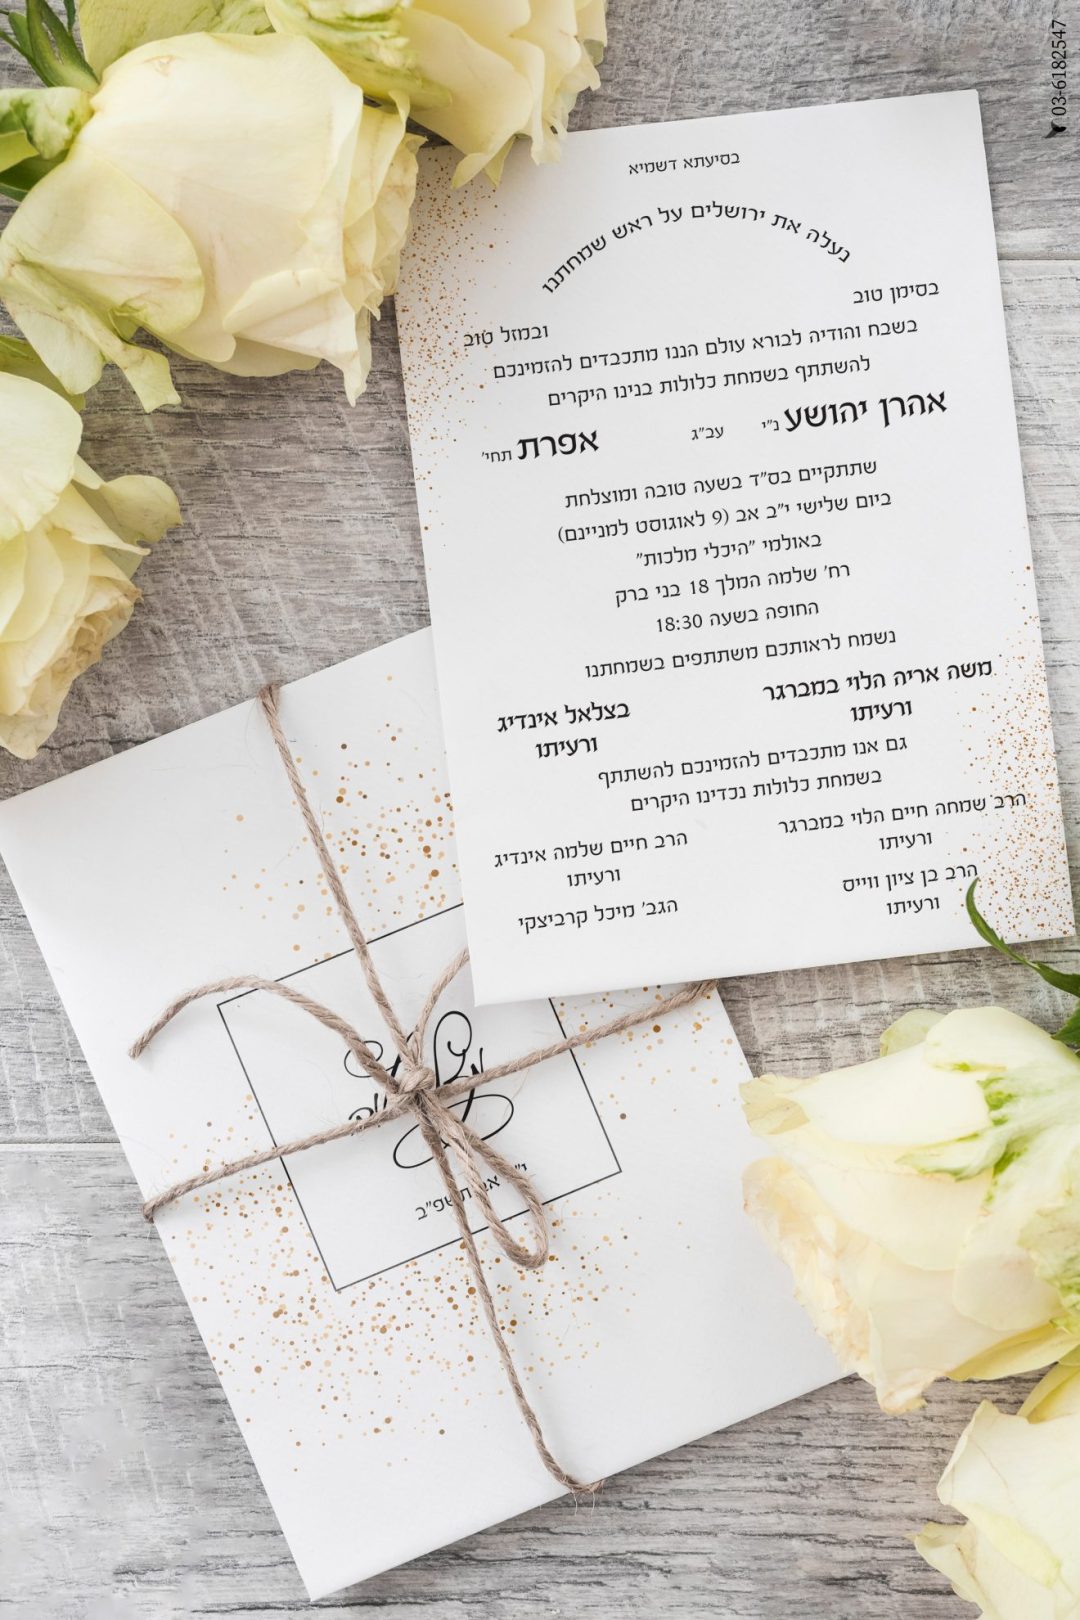 03-6182547
בסיעתא דשמיא
נעלה את ירושלים על ראש שמחתנו
בסימן טוב ובמזל טוב
בשבח והודיה לבורא עולם הננו מתכבדים להזמינכם
להשתתף בשמחת כלולות בנינו היקרים
אהרן יהושע נ"י עב"ג אפרת תחי'
שתתקיים בס"ד בשעה טובה ומוצלחת
ביום שלישי י"ב אב (9 לאוגוסט למניינם)
באולמי "היכלי מלכות"
רח' שלמה המלך 18 בני ברק
החופה בשעה 18:30
נשמח לראותכם משתתפים בשמחתנו
משה אריה הלוי במברגר בצלאל אינדיג
ורעיתו ורעיתו
גם אנו מתכבדים להזמינכם להשתתף
בשמחת כלולות נכדינו היקרים
הרב שמחה חיים הלוי במברגר הרב חיים שלמה אינדיג
ורעיתו ורעיתו
הרב בן ציון ווייס הגב' מיכל קרביצקי
ורעיתו